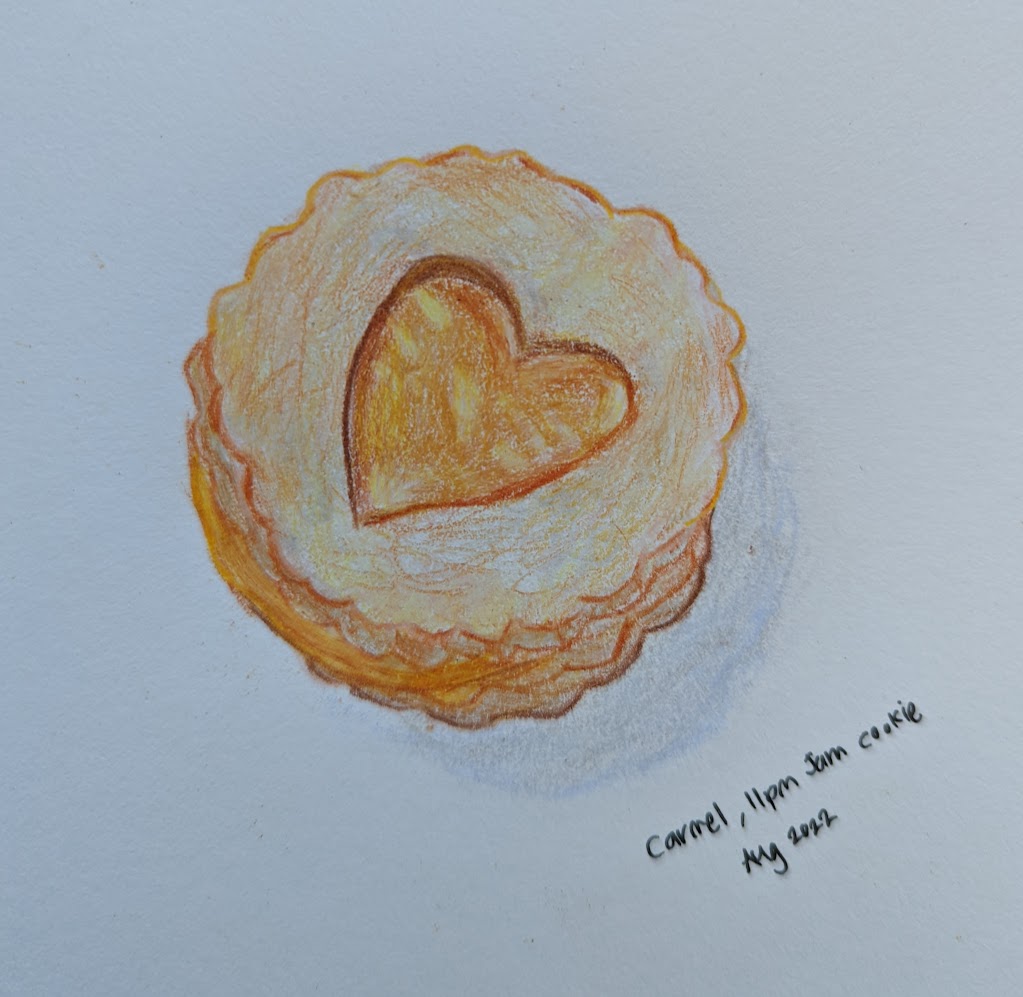 Carmel, 11pm Jam cookie
Aug 2022